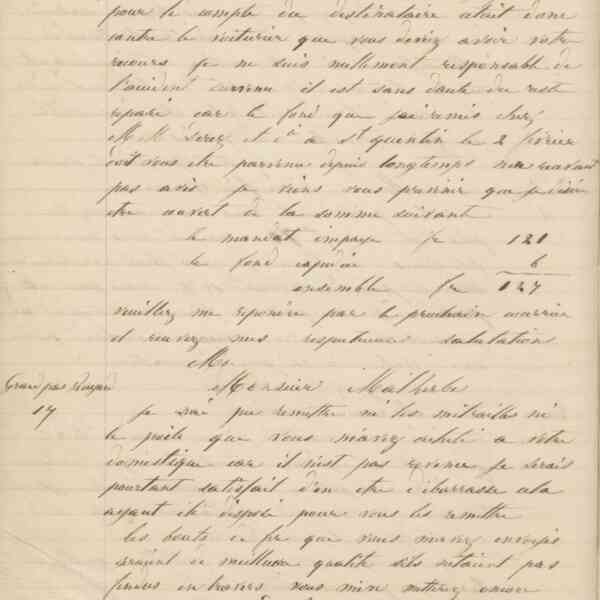 pour le compte du destinataire c'etait donc
contre le voiturier que vous deviez avoir votre
recours je ne suis nullement responsable de
l'accident survenu il est sans doute du reste
réparé car le fond que j'ai remis chez
M M et Cie a St quentin le 2 février
doit vous etre parvenu depuis longtemps
pas avis je viens vous prevenir que je désire
etre couvert de la somme suivant
le mandat impayé fr 121
le fond expédié 6
ensemble fr 127
veuillez me reponere par le prochain courrier
et recevez mes respectueuse salutation
Mr
Monsieur Malherbe
17
je n'ai pu remettre ni les mitrailles ni
le poele que vous m'avez acheté a votre
domestique car il n'est pas revenu je serais
pourtant satisfait d'en etre débarrassé cela
ayant été disposé pour vous les remettre
les bouts de fer que vous m'avez envoyés
seraient de meilleure qualité s'ils n'etaient pas
fendus en travers vous m'en mettrez encore